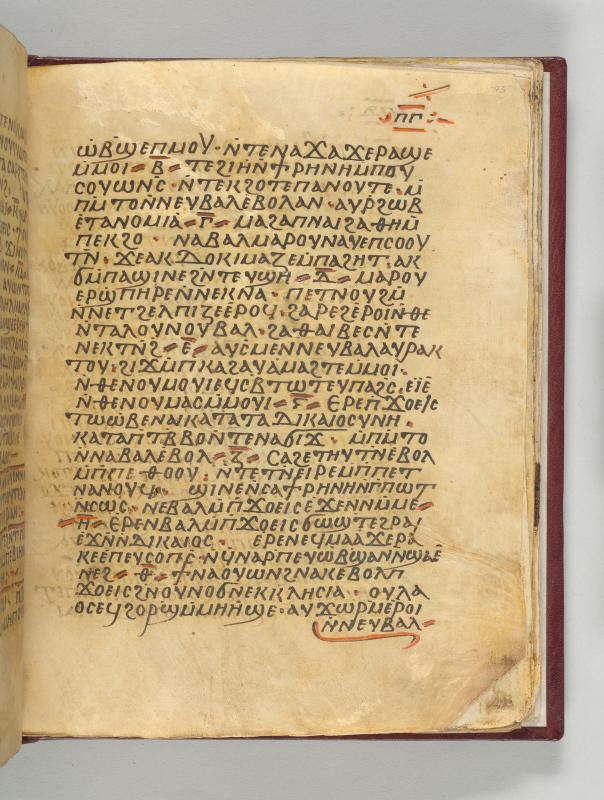 ⲡⲅ
ⲱⲃϣⲉⲡⲙⲟⲩ· ⲛ̄ⲧⲉⲛⲁϫⲁϫⲉⲣⲁϣⲉ
ⲙⲙⲟⲓ· ⲃ̄ ⲧⲉϩⲓⲏⲛ̄ϯⲣⲏⲛⲏⲙⲡⲟⲩ
ⲥⲟⲩⲱⲛⲥ̄· ⲛ̄ⲧⲉⲕϩⲟⲧⲉⲡⲁⲛⲟⲩⲧⲉ· ⲙ̄
ⲡⲙ̄ⲧⲟⲛ̄ⲛⲉⲩⲃⲁⲗⲉⲃⲟⲗⲁⲛ· ⲁⲩⲣϩⲱⲃ
ⲉⲧⲁⲛⲟⲙⲓⲁ· ⲅ̄ ⲙⲁϩⲁⲡⲛⲁⲓϩⲁⲑⲏⲙ̄
ⲡⲉⲕϩⲟ ⲛⲁⲃⲁⲗⲙⲁⲣⲟⲩⲛⲁⲩⲉⲡⲥⲟⲟⲩ
ⲧⲛ̄· ϫⲉⲁⲕⲇⲟⲕⲓⲙⲁⲍⲉⲙ̄ⲡⲁϩⲏⲧ· ⲁⲕ
ϭⲙ̄ⲡⲁϣⲓⲛⲉϩⲛ̄ⲧⲉⲩϣⲏ ⲇ̄ ⲙⲁⲣⲟⲩ
ⲉⲣϣⲡⲏⲣⲉⲛ̄ⲛⲉⲕⲛⲁ· ⲡⲉⲧⲛⲟⲩϩⲙ̄
ⲛ̄ⲛⲉⲧϩⲉⲗⲡⲓⲍⲉⲉⲣⲟϥ· ϩⲁⲣⲉϩⲉⲣⲟⲓⲛ̄ⲑⲉ
ⲛ̄ⲧⲁⲗⲟⲩⲛⲟⲩⲃⲁⲗ· ϩⲁⲑⲁⲓⲃⲉⲥⲛ̄ⲧⲉ
ⲛⲉⲕⲧⲛ̄ϩ ⲉ̄ ⲁⲩⲥⲙⲉⲛⲛⲉⲩⲃⲁⲗⲁⲩⲣⲁⲕ
ⲧⲟⲩ· ϩⲓϫⲙ̄ⲡⲕⲁϩⲁⲩⲁⲙⲁϩⲧⲉⲙ̄ⲙⲟⲓ·
ⲛ̄ⲑⲉⲛⲟⲩⲙⲟⲩⲓⲉϥⲥⲃⲧⲱⲧⲉⲩⲡⲁϭⲥ· ⲉⲓⲉ
ⲛ̄ⲑⲉⲛⲟⲩⲙⲁⲥⲙ̄ⲙⲟⲩⲓ· ⲋ̄ ⲉⲣⲉⲡϫⲟⲉⲓⲥ
ⲧⲱⲱⲃⲉⲛⲁⲓⲕⲁⲧⲁⲧⲁⲇⲓⲕⲁⲓⲟⲥⲩⲛⲏ·
ⲕⲁⲧⲁⲡⲧⲃ̄ⲃⲟⲛ̄ⲧⲉⲛⲁϭⲓϫ· ⲙ̄ⲡⲙ̄ⲧⲟ
ⲛ̄ⲛⲁⲃⲁⲗⲉⲃⲟⲗ ⲍ̄ ⲥⲁϩⲉⲧⲏⲩⲧⲛ̄ⲉⲃⲟⲗ
ⲙ̄ⲡⲡⲉⲑⲟⲟⲩ· ⲛ̄ⲧⲉⲧⲛ̄ⲉⲓⲣⲉⲙ̄ⲡⲡⲉⲧ
ⲛⲁⲛⲟⲩϥ· ϣⲓⲛⲉⲛ̄ⲥⲁϯⲣⲏⲛⲏⲛⲅ̄ⲡⲱⲧ
ⲛ̄ⲥⲱⲥ· ⲛⲉⲃⲁⲗⲙ̄ⲡϫⲟⲉⲓⲥⲉϫⲉⲛⲛⲙ̄ⲙⲉ
ⲏ̄ ⲉⲣⲉⲛⲃⲁⲗⲙ̄ⲡϫⲟⲉⲓⲥϭⲱϣⲧⲉϩⲣⲁⲓ
ⲉϫⲛ̄ⲛ̄ⲇⲓⲕⲁⲓⲟⲥ· ⲉⲣⲉⲛⲉϥⲙⲁⲁϫⲉⲣⲁ
ⲕⲉⲉⲡⲉⲩⲥⲟⲡⲥ̄· ⲛ̄ϥⲛⲁⲣⲡⲉⲩⲱⲃϣⲁⲛϣⲁⲉ
ⲛⲉϩ ⲑ̄ ϯⲛⲁⲟⲩⲱⲛϩ̄ⲛⲁⲕⲉⲃⲟⲗⲡ
ϫⲟⲉⲓⲥϩⲛⲟⲩⲛⲟϭⲛⲉⲕⲕⲗⲏⲥⲓⲁ· ⲟⲩⲗⲁ
ⲟⲥⲉϥϩⲟⲣϣⲙ̄ⲙⲏⲏϣⲉ· ⲁⲩϫⲱⲣⲙⲉⲣⲟⲓ
ⲛ̄ⲛⲉⲩⲃⲁⲗ